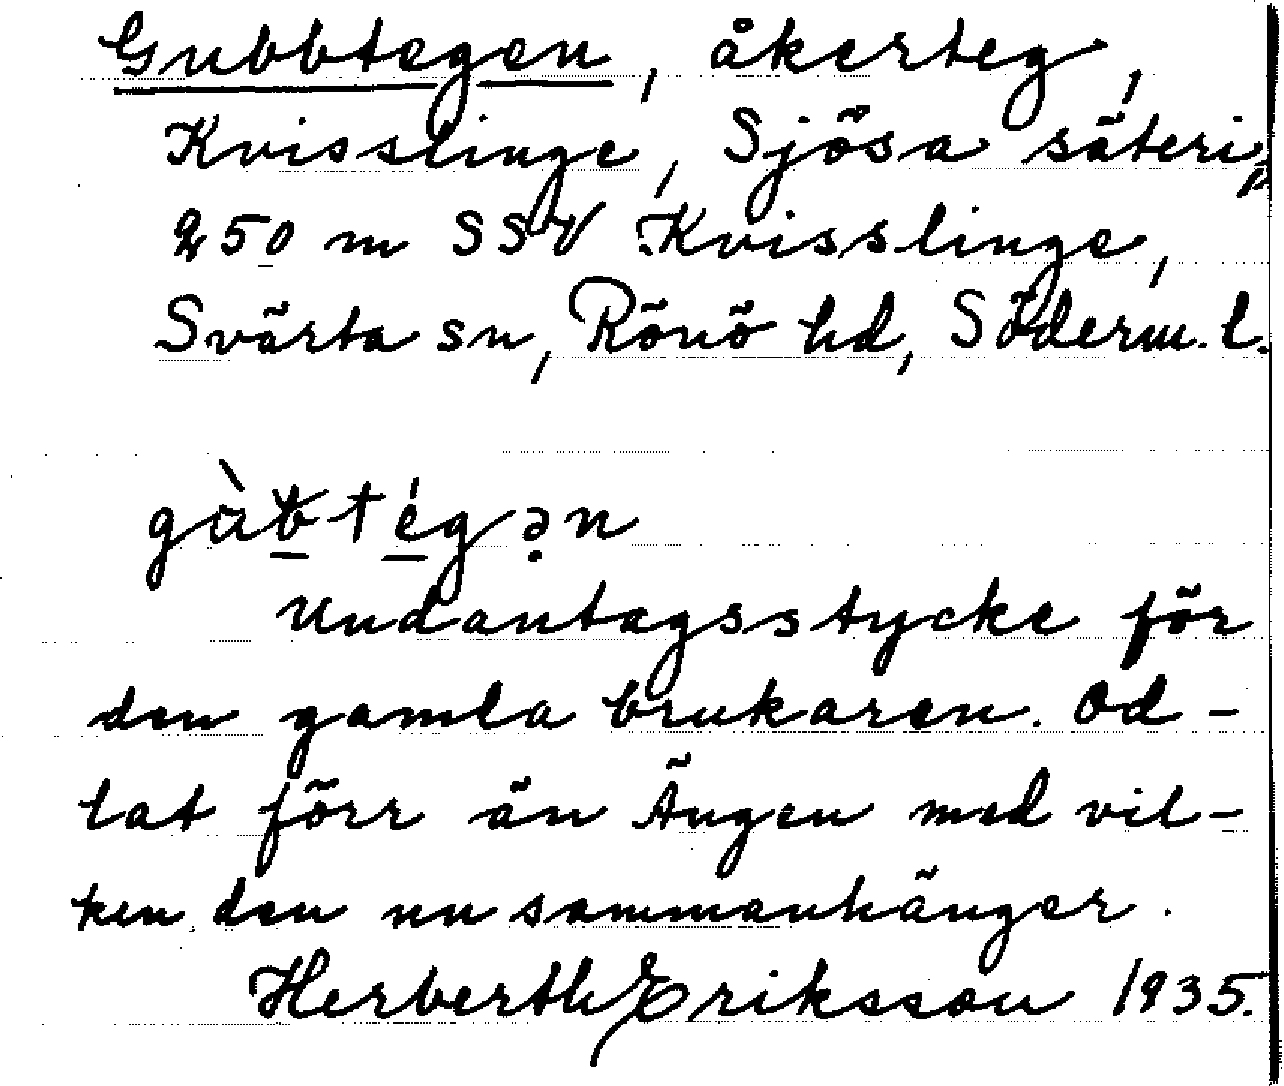 Gubbtegen, åkerteg,
Kvisslinge, Sjösa säteri,
250 m SSV Kvisslinge,
Svärta sn, Rönö hd, Söderm. l.
gàbtégən
Undantagsstycke för
den gamla brukaren. Od-
lat förr än Ängen med vil-
ken den nu sammanhänger.
Herberth Eriksson 1935.